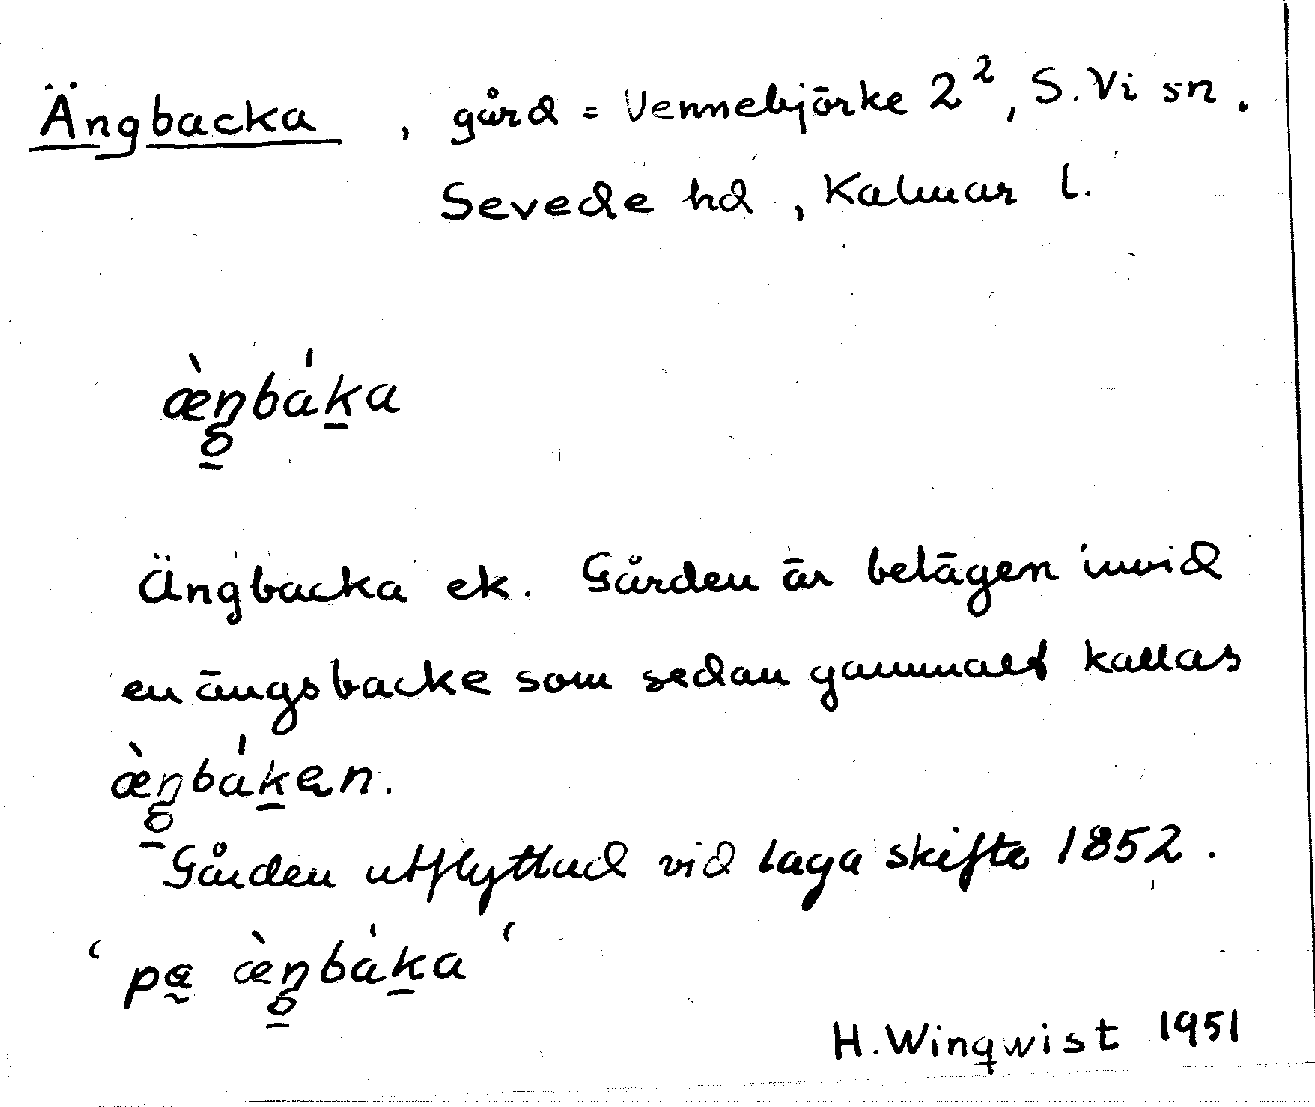 Ängbacka, gård = Vennebjörke 2², S. Vi sn.
Sevede hd, Kalmar l.
æ̀ŋbáka
Ängbacka ek. Gården är belägen invid
en ängsbacke som sedan gammalt kallas
æ̀ŋbákan.
Gården utflyttad vid laga skifte 1852.
‘pa æ̀ŋbáka‘
H. Winqwist 1951